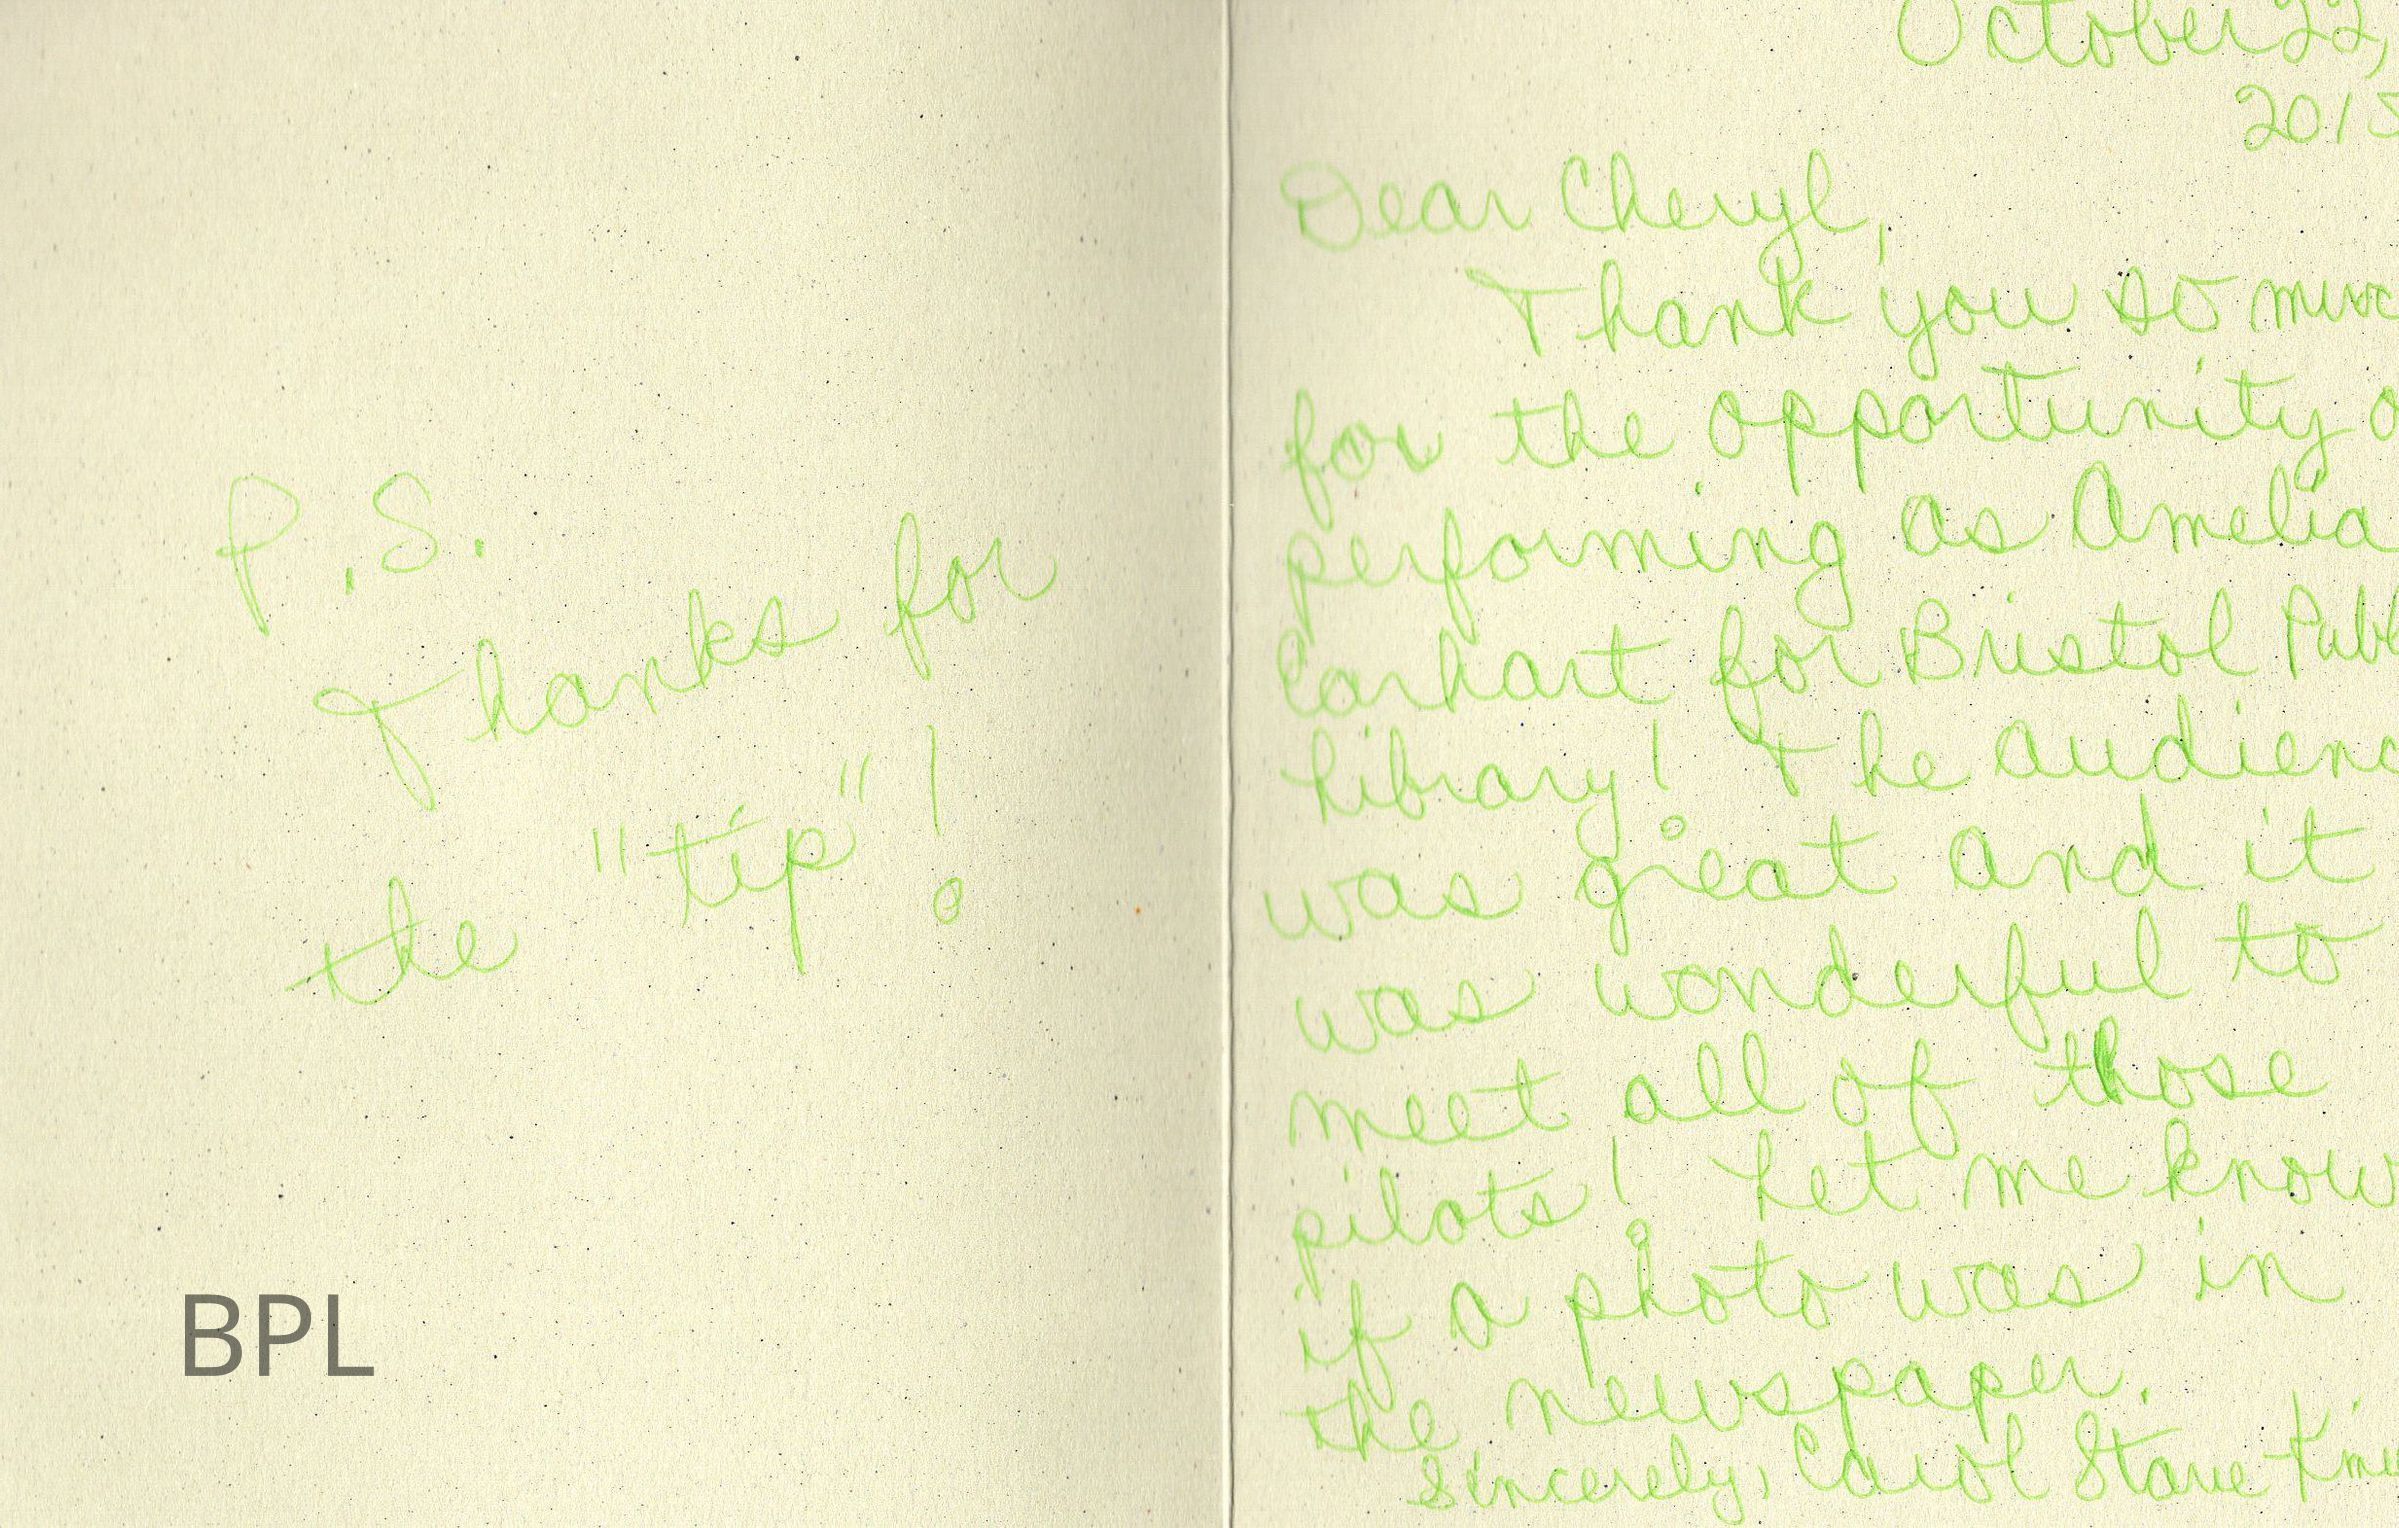 P.S.
Thanks for
the "tip"!
BPL
October 22,
2013
Dear Cheryl,
Thank you so muc
for the opportunity o
performing as Amelia
Earhart for Bristol Publ
Library! The audienc
was great and it
was wonderful to
meet all of those
pilots! Let me know
if a photo was in
the newspaper.
Sincerely, Carol Starre